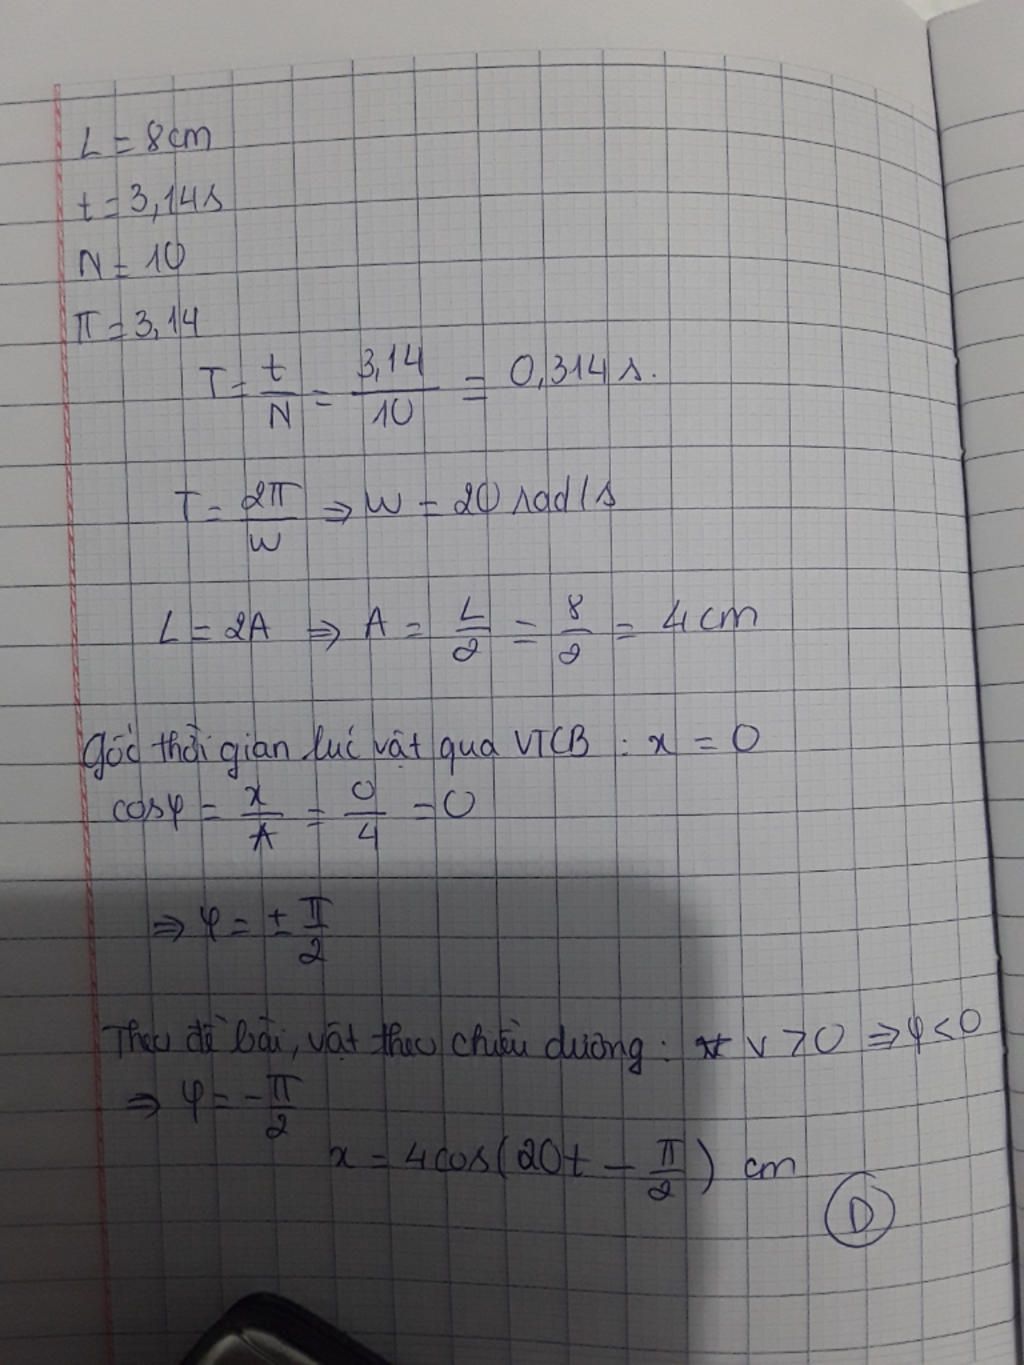 L = 8cm
t = 3,14s
N = 10
π = 3,14
T = t/N = 3,14/10 = 0,314 s.
T = 2π/w ⇒ w = 20 rad/s
L = 2A ⇒ A = L/2 = 8/2 = 4 cm
gốc thời gian lúc vật qua VTCB : x = 0
cosφ = x/A = 0/4 = 0
⇒ φ = ± π/2
Theo đề bài, vật theo chiều dương: v > 0 ⇒ φ < 0
⇒ φ = - π/2
x = 4cos(20t - π/2) cm
D